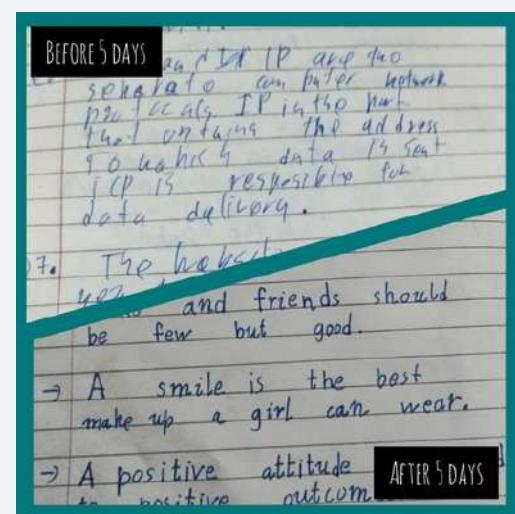 BEFORE 5 DAYS
and IP are two
separato computer network
protocals IP in the part
that contains the address
to which data is sent
TCP is resposible for
data delivory.
7. The
and friends should
be few but good.
→ A smile is the best
make up a girl can wear.
→ A positive attitude
to positive outcom
AFTER 5 DAYS